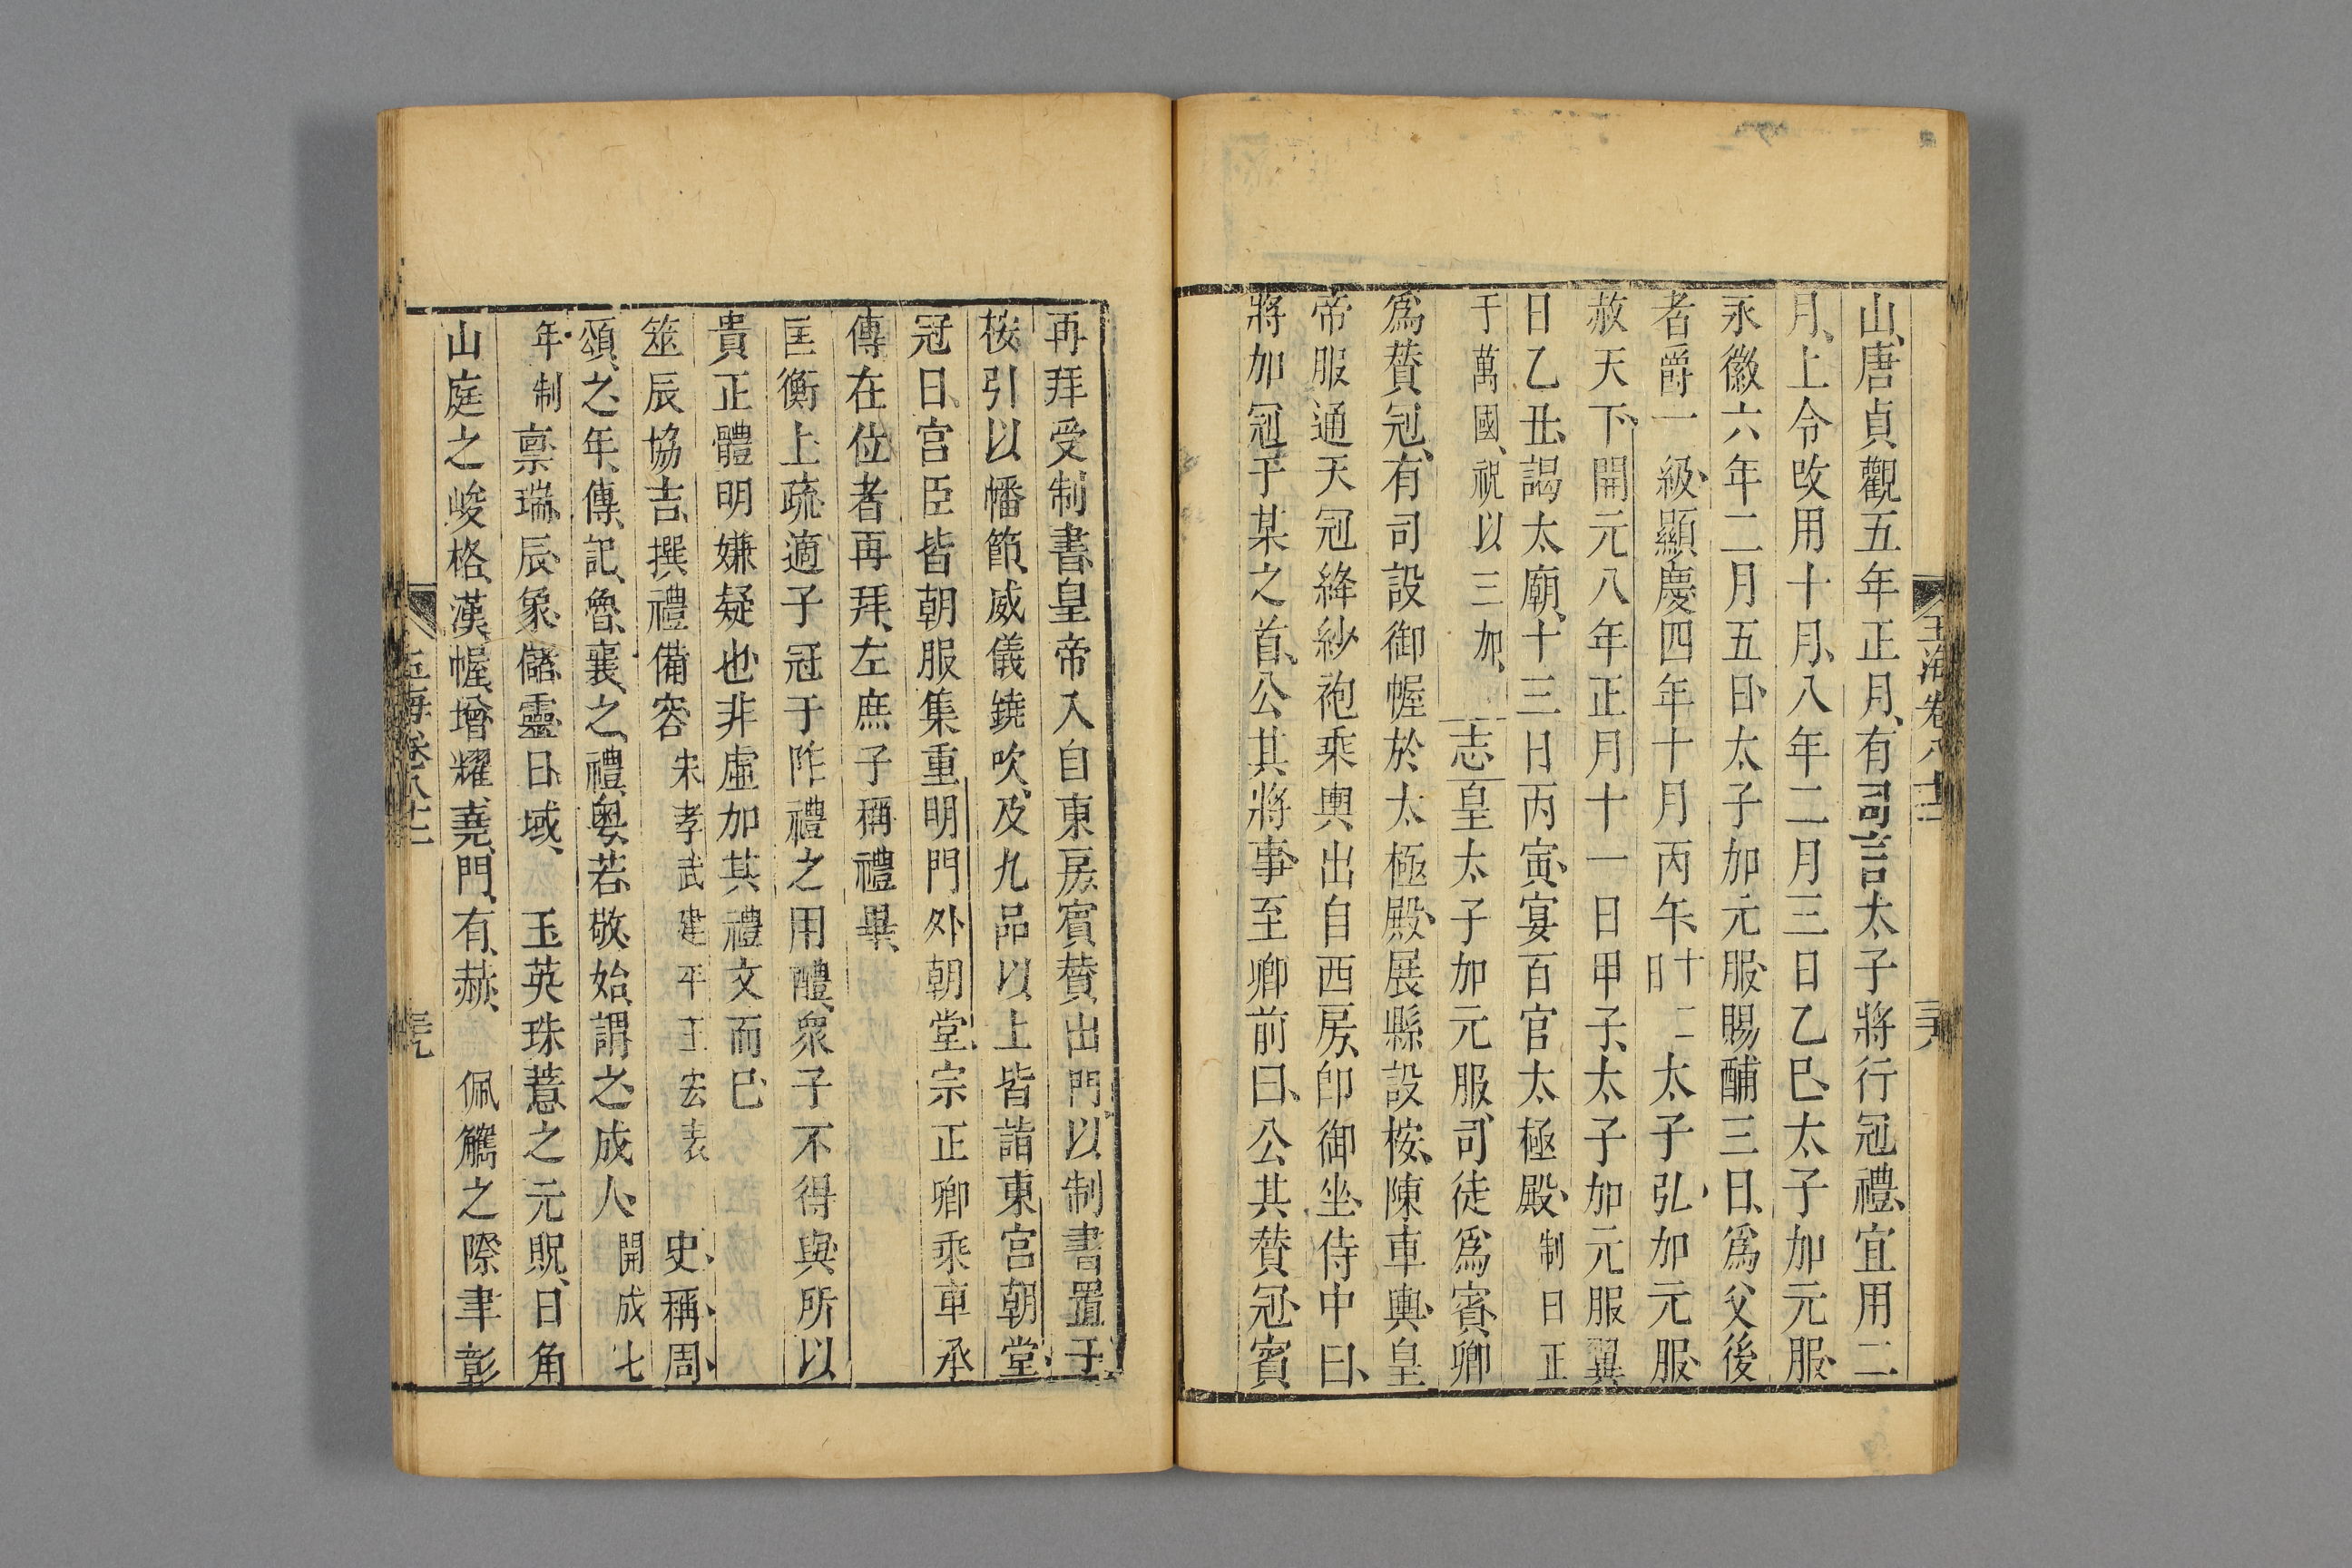 山唐貞觀五年正月有司言太子將行冠禮宜用二
月上令改用十月八年二月三日乙巳太子加元服
永徽六年二月五日太子加元服賜酺三日爲父後
者爵一級顯慶四年十月丙午十二日太子弘加元服
赦天下開元八年正月十一日甲子太子加元服翼
日乙丑謁太廟十三日丙寅宴百官太極殿制曰正
于萬國祝以三加志皇太子加元服司徒爲賓卿
爲贊冠有司設御幄於太極殿展縣設桉陳車輿皇
帝服通天冠絳紗袍乘輿出自西房卽御坐侍中曰
將加冠于某之首公其將事至卿前曰公其贊冠賓
再拜受制書皇帝入自東房賓贊出門以制書置于
桉引以幡節威儀鐃吹及九品以上皆詣東宮朝堂
冠日宮臣皆朝服集重明門外朝堂宗正卿乘車承
傳在位者再拜左庶子稱禮畢
匡衡上疏適子冠于阼禮之用醴衆子不得與所以
貴正體明嫌疑也非虛加其禮文而已
筮辰協吉撰禮備容宋孝武建平王宏表史稱周
頌之年傳記魯襄之禮粵若敬始謂之成人開成七
年制禀瑞辰象儲靈日域玉英珠薏之元貺日角
山庭之峻格漢幄增耀堯門有赫佩觿之際聿彰